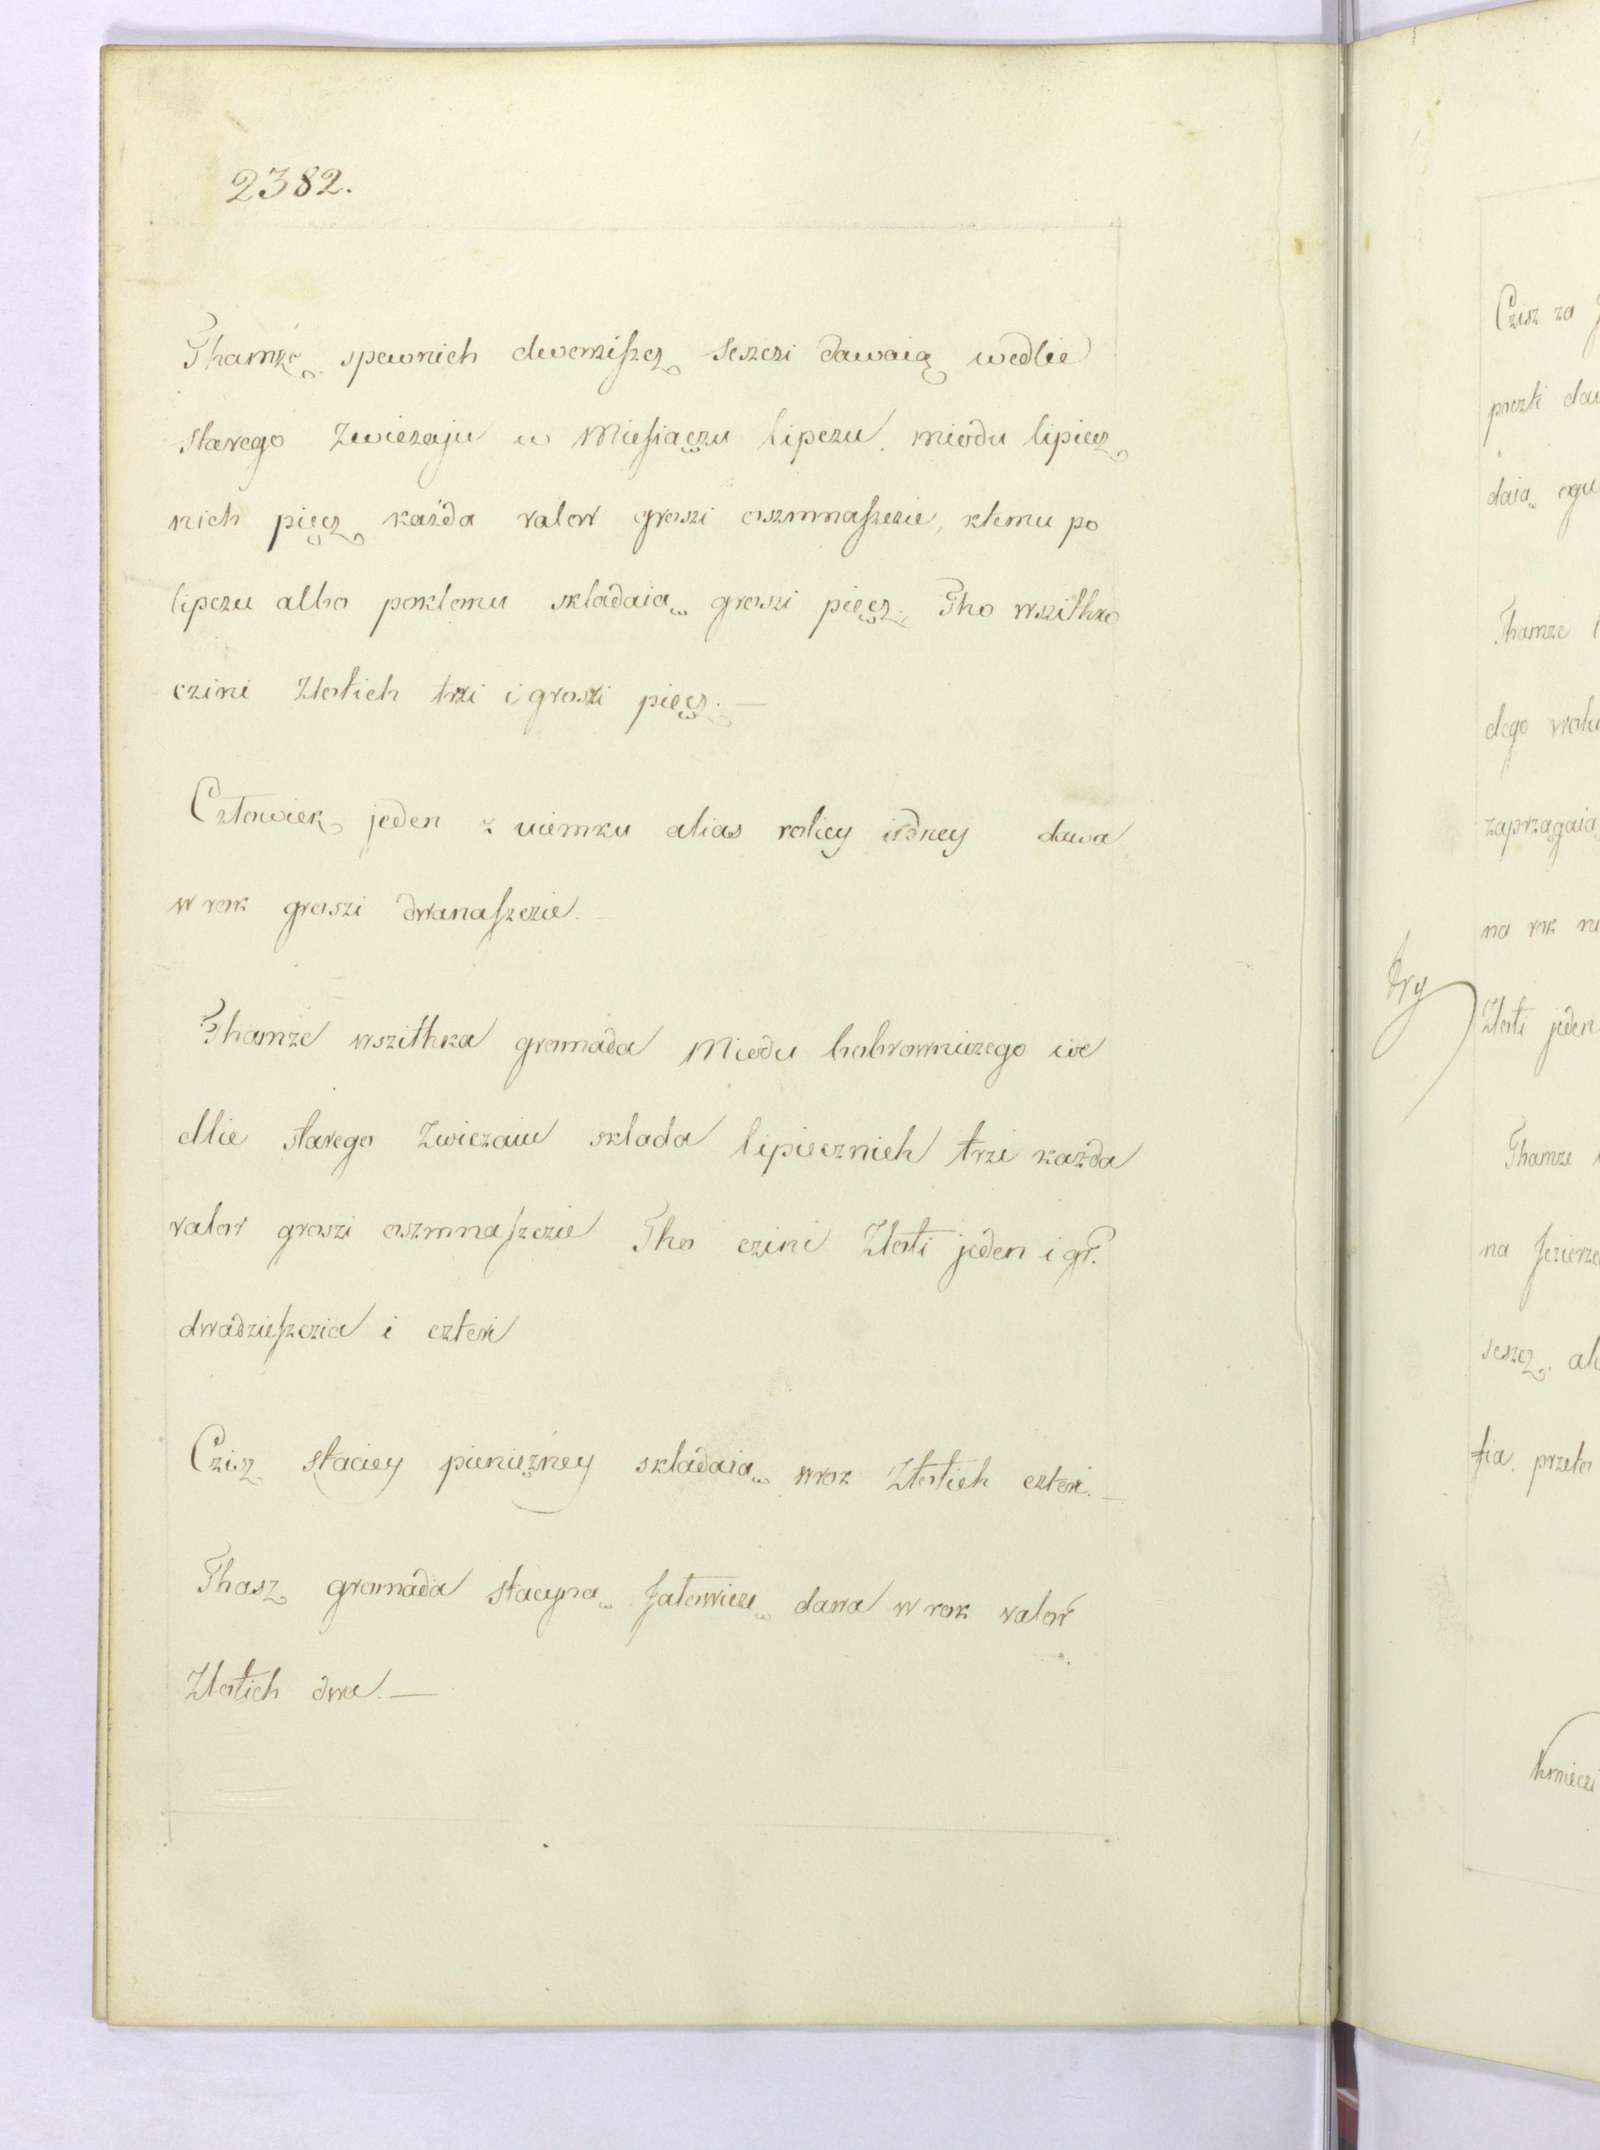 2382.
Thamże spewnich dworziszcz sesczi dawaią wedlie
starego Zwiezaju w Miesiączu lipczu, miodu lipiecz
nich pięcz każda valor groszi oszmnaszczie, ktemu po
lipczu albo poklonu skladaią groszi pięcz. Tho wszithko
czini Zlotich trzi i groszi pięcz. —
Człowiek jeden z uiemku alias rolicy iedney dawa
w rok groszi dwanaszczie. —
Thamże wszithka gromada Miodu bobrowniczego we
dlie starego Zwiczaiu sklada lipiecznich trzi każda
valor groszi oszmnaszczie Tho czini Zloti jeden i gr.
dwadzieszczia i czteri
Czisz staciey pieniężney składaią wrok Złotich czteri. —
Thasz gromada stacyną Jałowiczę dawa w rok valor
Zlotich dwa. —
Czisz za
Thamze
dego
zaprzągaią
na rok
try
Zloti jeden
Thamze
na Jezierze
seszcz.
tia. przeto